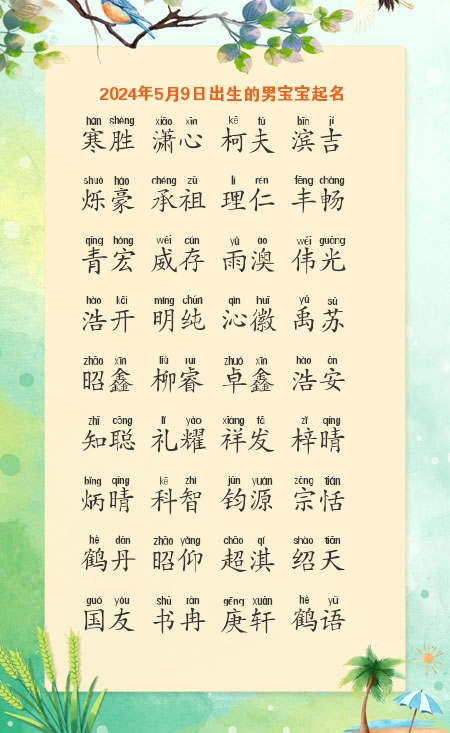 2024年5月9日出生的男宝宝起名
hán shèng xiāo xīn kē fū bīn jí
寒胜 潇心 柯夫 滨吉
shuò háo chéng zǔ lǐ rén fēng chàng
烁豪 承祖 理仁 丰畅
qīng hóng wēi cún yǔ ào wěi guāng
青宏 威存 雨澳 伟光
hào kāi míng chún qìn huī yǔ sū
浩开 明纯 沁徽 禹苏
zhāo xīn liǔ ruì zhuó xīn hào ān
昭鑫 柳睿 卓鑫 浩安
zhī cōng lǐ yào xiáng fā zǐ qíng
知聪 礼耀 祥发 梓晴
bǐng qíng kē zhì jūn yuán zōng tián
炳晴 科智 钧源 宗恬
hè dān zhāo yǎng chāo qí shào tiān
鹤丹 昭仰 超淇 绍天
guó yǒu shū rǎn gēng xuān hè yǔ
国友 书冉 庚轩 鹤语